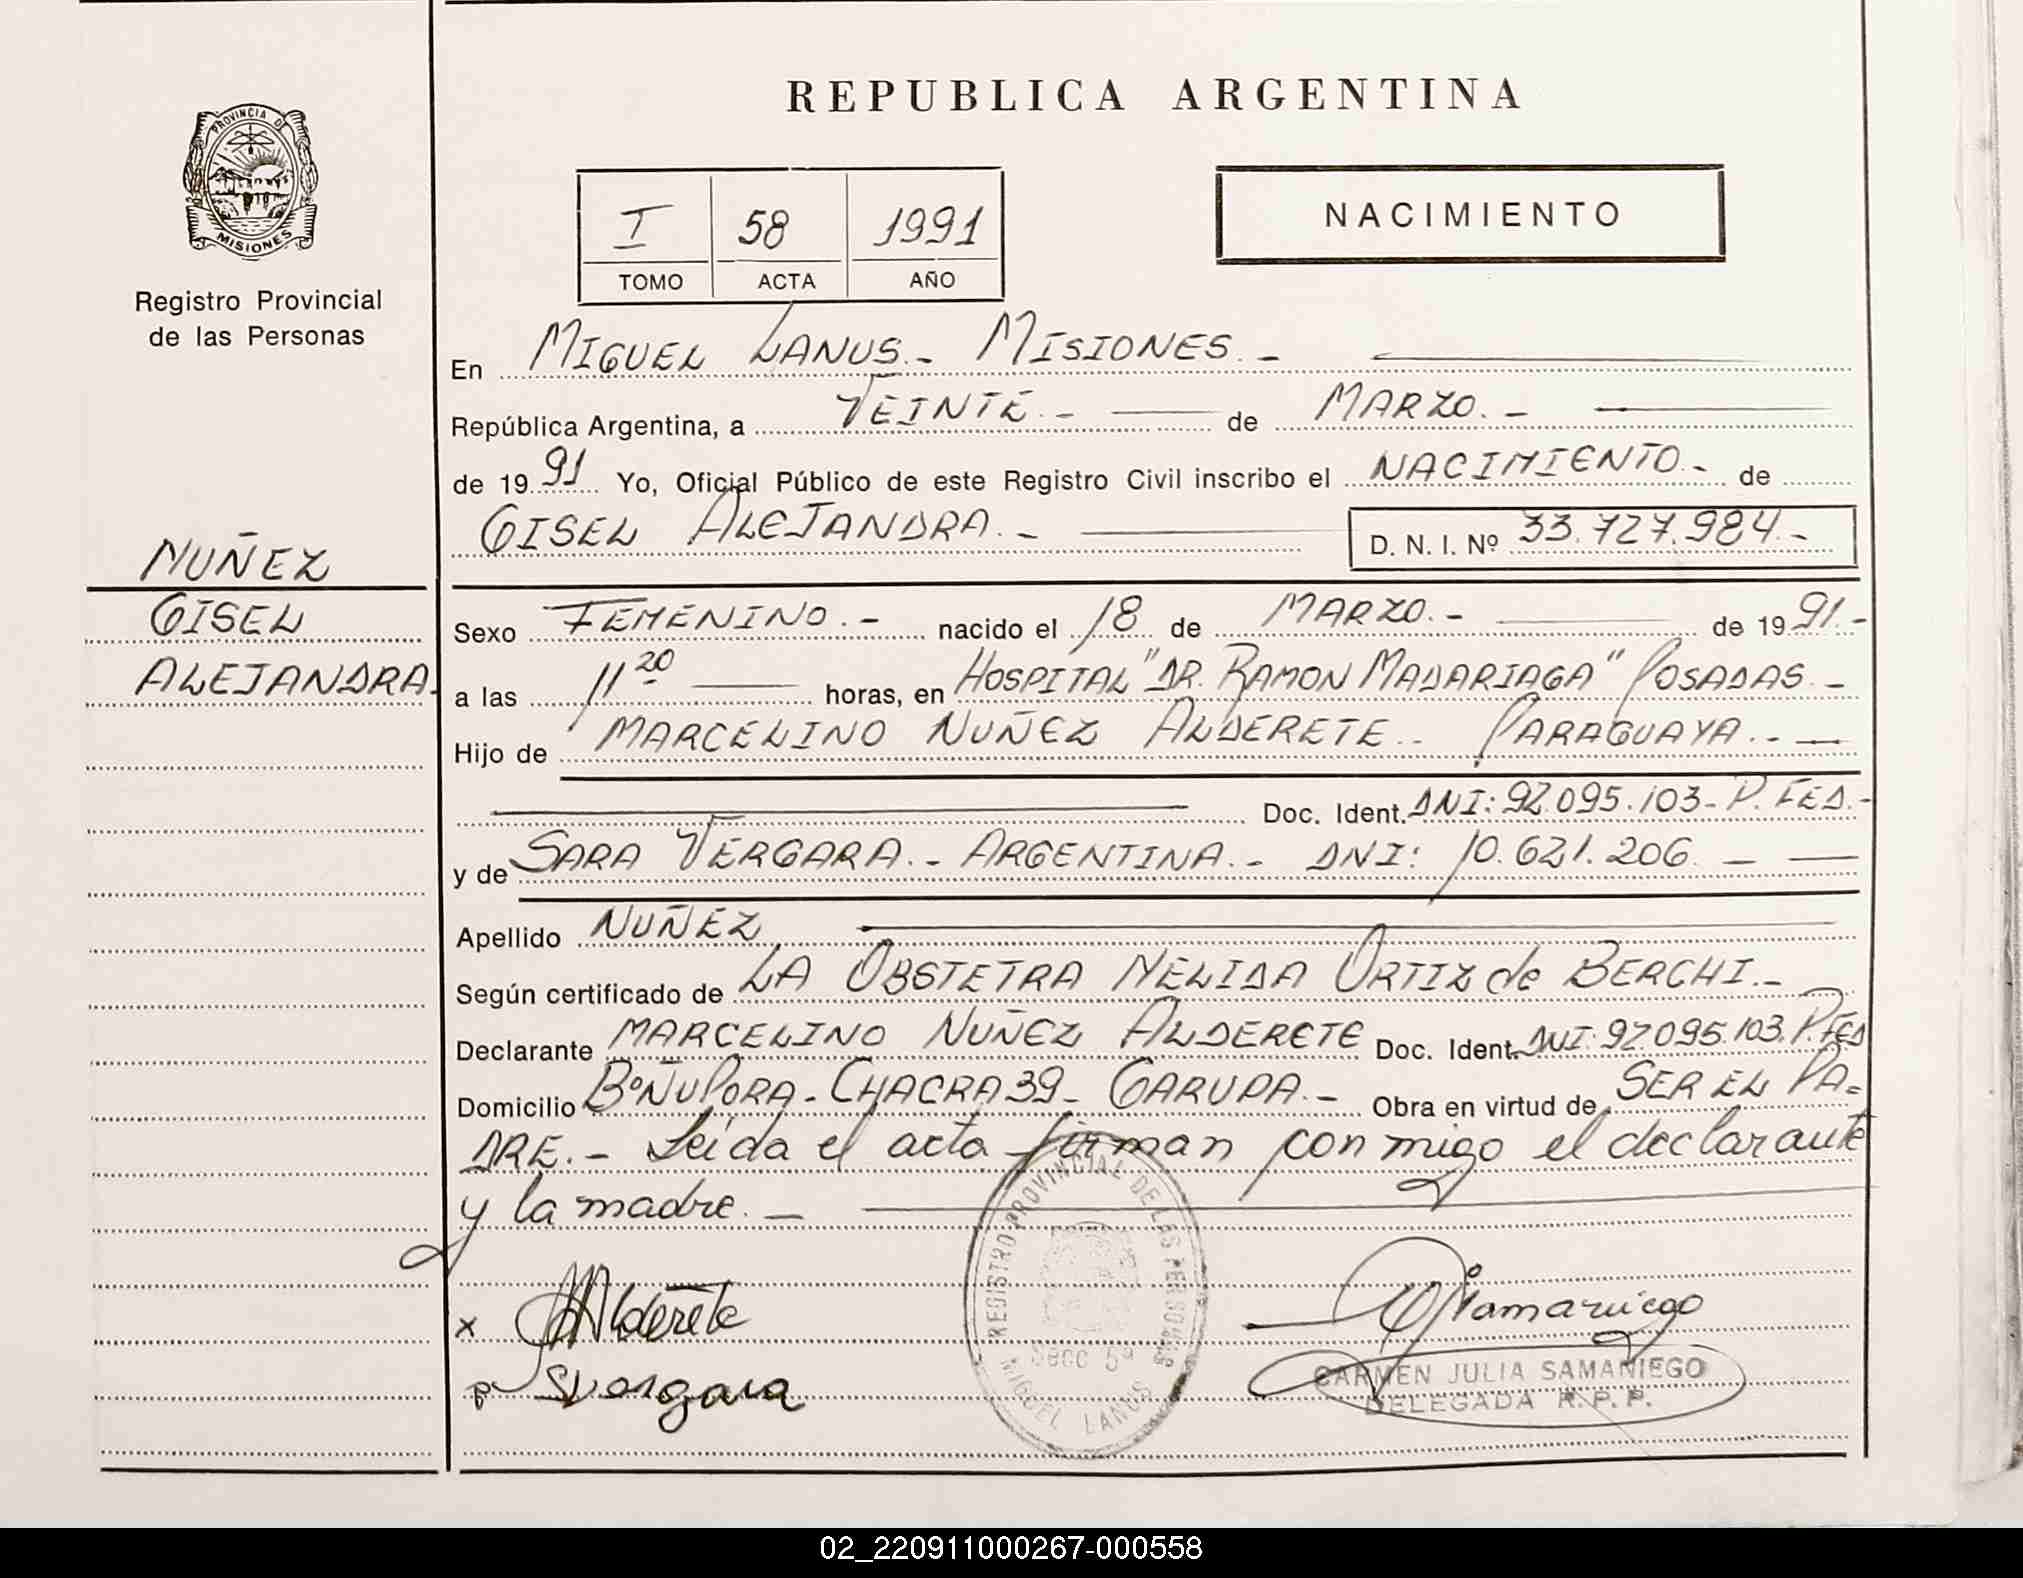 REPUBLICA ARGENTINA
PROVINCIA DE
MISIONES
Registro Provincial
de las Personas
NUÑEZ
GISEL
ALEJANDRA
I 58 1991
TOMO ACTA AÑO
NACIMIENTO
En MIGUEL LANUS.- MISIONES.-
República Argentina, a VEINTE.- de MARZO.-
de 1991 Yo, Oficial Público de este Registro Civil inscribo el NACIMIENTO.- de
GISEL ALEJANDRA.- D. N. I. Nº 33.727.984.-
Sexo FEMENINO.- nacido el 18 de MARZO.- de 1991.-
a las 11 20 horas, en HOSPITAL "DR. RAMON MADARIAGA" POSADAS.-
Hijo de MARCELINO NUÑEZ ALDERETE.- PARAGUAYA.-
Doc. Ident. DNI: 92.095.103- P. FED.-
y de SARA VERGARA.- ARGENTINA.- DNI: 10.621.206.-
Apellido NUÑEZ
Según certificado de LA OBSTETRA NELIDA ORTIZ de BERCHI.-
Declarante MARCELINO NUÑEZ ALDERETE Doc. Ident. DNI: 92.095.103. P. FED
Domicilio Bº ÑU PORA - CHACRA 39 - GARUPA.- Obra en virtud de SER EL PA=
DRE.- Leída el acta firman conmigo el declarante
y la madre.-
x Alderete
SVergara
REGISTRO PROVINCIAL DE LAS PERSONAS
Secc 5ª
MIGUEL LANUS
CJSamaniego
CARMEN JULIA SAMANIEGO
DELEGADA R.P.P.
02_220911000267-000558